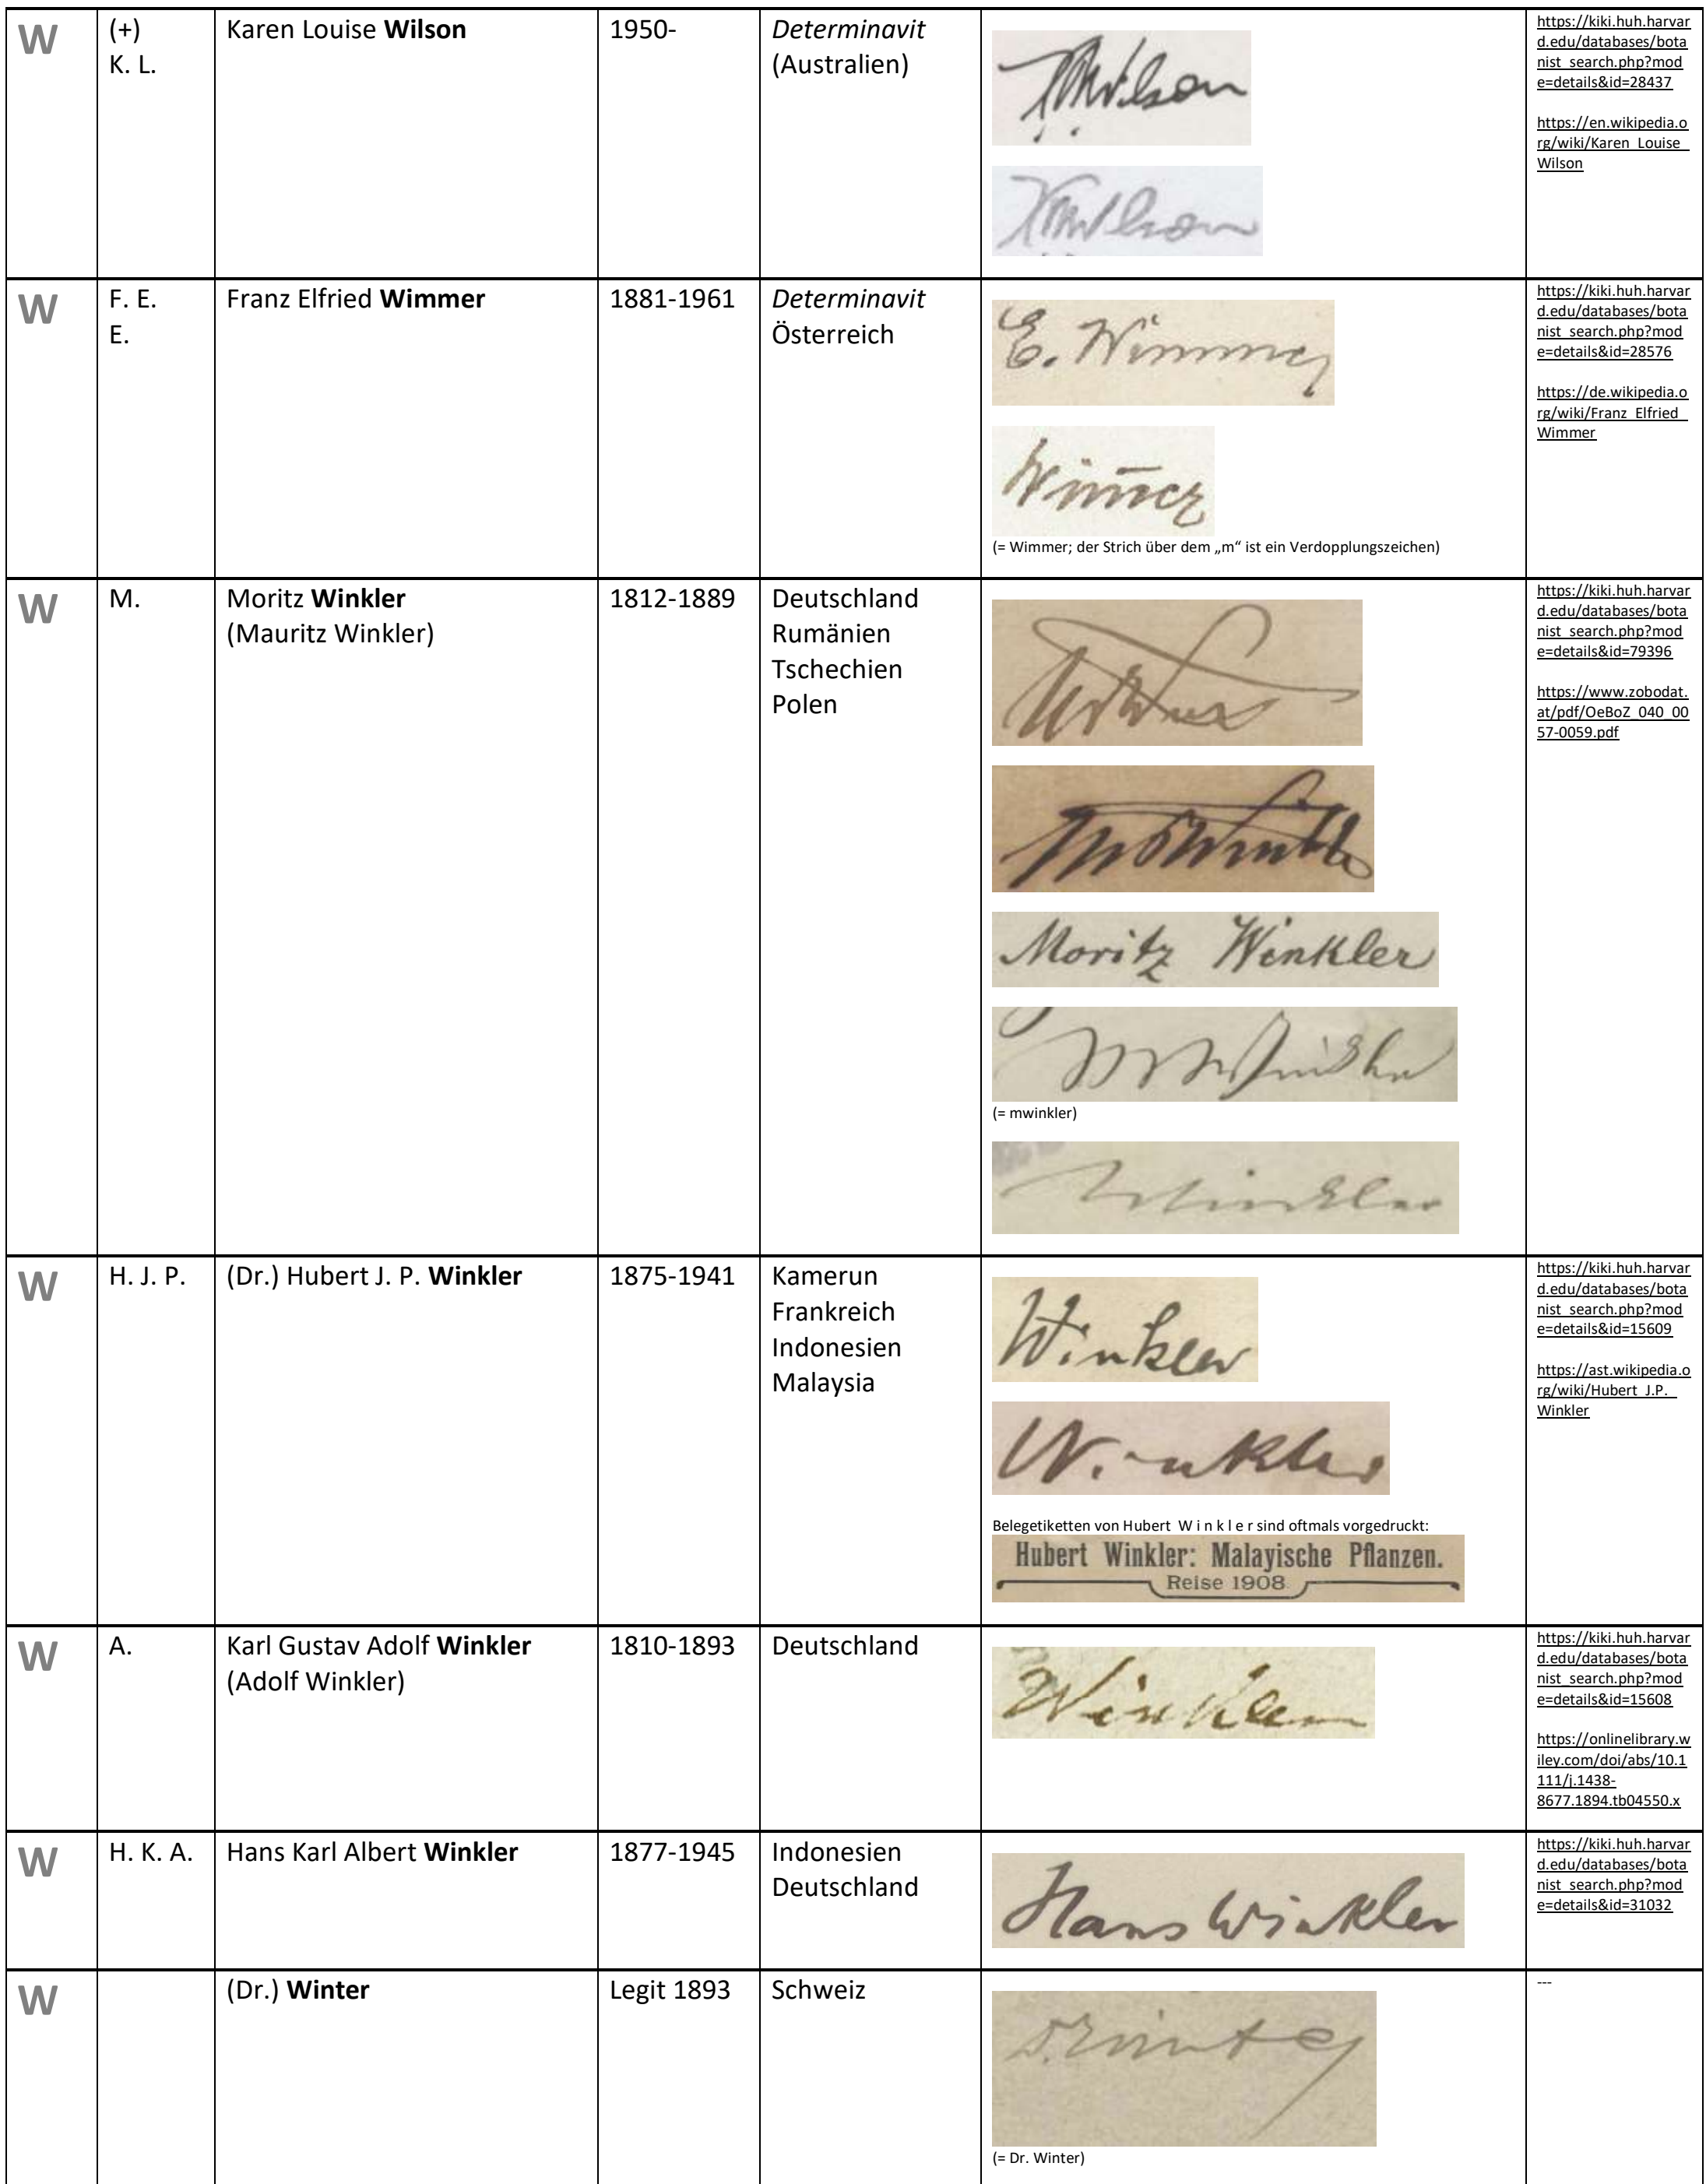 W
(+)
K. L.
Karen Louise Wilson
1950-
Determinavit
(Australien)
KMWilson
KMWilson
https://kiki.huh.harvar
d.edu/databases/bota
nist_search.php?mod
e=details&id=28437
https://en.wikipedia.o
rg/wiki/Karen_Louise_
Wilson
W
F. E.
E.
Franz Elfried Wimmer
1881-1961
Determinavit
Österreich
E. Wimmer
Wim̅er
(= Wimmer; der Strich über dem „m“ ist ein Verdopplungszeichen)
https://kiki.huh.harvar
d.edu/databases/bota
nist_search.php?mod
e=details&id=28576
https://de.wikipedia.o
rg/wiki/Franz_Elfried_
Wimmer
W
M.
Moritz Winkler
(Mauritz Winkler)
1812-1889
Deutschland
Rumänien
Tschechien
Polen
Moritz Winkler
mwinkler
(= mwinkler)
Winkler
https://kiki.huh.harvar
d.edu/databases/bota
nist_search.php?mod
e=details&id=79396
https://www.zobodat.
at/pdf/OeBoZ_040_00
57-0059.pdf
W
H. J. P.
(Dr.) Hubert J. P. Winkler
1875-1941
Kamerun
Frankreich
Indonesien
Malaysia
Winkler
Winkler
Belegetiketten von Hubert W i n k l e r sind oftmals vorgedruckt:
Hubert Winkler: Malayische Pflanzen.
Reise 1908.
https://kiki.huh.harvar
d.edu/databases/bota
nist_search.php?mod
e=details&id=15609
https://ast.wikipedia.o
rg/wiki/Hubert_J.P._
Winkler
W
A.
Karl Gustav Adolf Winkler
(Adolf Winkler)
1810-1893
Deutschland
Winkler
https://kiki.huh.harvar
d.edu/databases/bota
nist_search.php?mod
e=details&id=15608
https://onlinelibrary.w
iley.com/doi/abs/10.1
111/j.1438-
8677.1894.tb04550.x
W
H. K. A.
Hans Karl Albert Winkler
1877-1945
Indonesien
Deutschland
Hans Winkler
https://kiki.huh.harvar
d.edu/databases/bota
nist_search.php?mod
e=details&id=31032
W
(Dr.) Winter
Legit 1893
Schweiz
Dr. Winter
(= Dr. Winter)
---